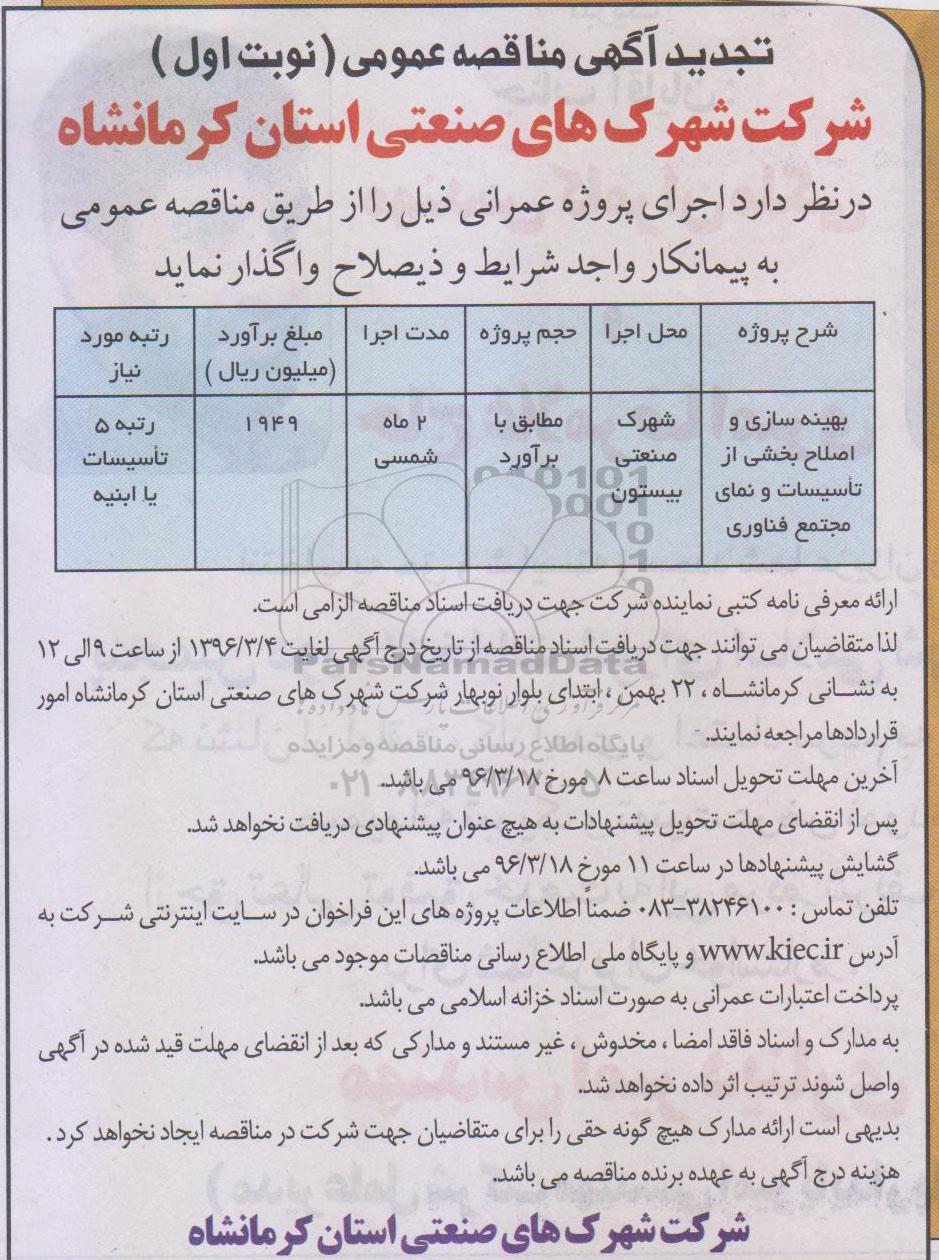 تجدید آگهی مناقصه عمومی (نوبت اول)
شرکت شهرک های صنعتی استان کرمانشاه
درنظر دارد اجرای پروژه عمرانی ذیل را از طریق مناقصه عمومی
به پیمانکار واجد شرایط و ذیصلاح واگذار نماید
شرح پروژه
محل اجرا
حجم پروژه
مدت اجرا
مبلغ برآورد
(میلیون ریال)
رتبه مورد
نیاز
بهینه سازی و
اصلاح بخشی از
تأسیسات و نمای
مجتمع فناوری
شهرک
صنعتی
بیستون
مطابق با
برآورد
۲ ماه
شمسی
۱۹۴۹
رتبه ۵
تأسیسات
یا ابنیه
ارائه معرفی نامه کتبی نماینده شرکت جهت دریافت اسناد مناقصه الزامی است.
لذا متقاضیان می توانند جهت دریافت اسناد مناقصه از تاریخ درج آگهی لغایت ۱۳۹۶/۳/۴ از ساعت ۹ الی ۱۲
به نشانی کرمانشاه ، ۲۲ بهمن ، ابتدای بلوار نوبهار شرکت شهرک های صنعتی استان کرمانشاه امور
قراردادها مراجعه نمایند.
آخرین مهلت تحویل اسناد ساعت ۸ مورخ ۹۶/۳/۱۸ می باشد.
پس از انقضای مهلت تحویل پیشنهادات به هیچ عنوان پیشنهادی دریافت نخواهد شد.
گشایش پیشنهادها در ساعت ۱۱ مورخ ۹۶/۳/۱۸ می باشد.
تلفن تماس : ۳۸۲۴۶۱۰۰-۰۸۳ ضمناً اطلاعات پروژه های این فراخوان در سایت اینترنتی شرکت به
آدرس www.kiec.ir و پایگاه ملی اطلاع رسانی مناقصات موجود می باشد.
پرداخت اعتبارات عمرانی به صورت اسناد خزانه اسلامی می باشد.
به مدارک و اسناد فاقد امضا ، مخدوش ، غیر مستند و مدارکی که بعد از انقضای مهلت قید شده در آگهی
واصل شوند ترتیب اثر داده نخواهد شد.
بدیهی است ارائه مدارک هیچ گونه حقی را برای متقاضیان جهت شرکت در مناقصه ایجاد نخواهد کرد .
هزینه درج آگهی به عهده برنده مناقصه می باشد.
شرکت شهرک های صنعتی استان کرمانشاه
ParsNamadData
پایگاه اطلاع رسانی مناقصه و مزایده